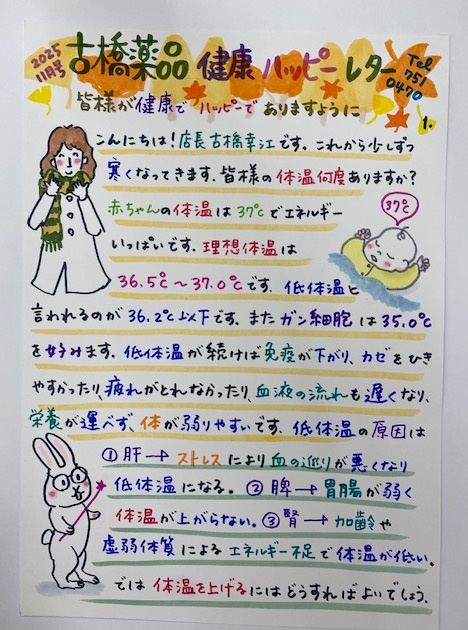 2025
11月号
古橋薬品 健康ハッピーレター
Tel
751
0470
皆様が健康でハッピーでありますように
1.
こんにちは!店長古橋幸江です。これから少しずつ
寒くなってきます。皆様の体温何度ありますか?
赤ちゃんの体温は37℃でエネルギー
37℃
いっぱいです。理想体温は
36.5℃〜37.0℃です。低体温と
言われるのが36.2℃以下です。またガン細胞は35.0℃
を好みます。低体温が続けば免疫が下がり、カゼをひき
やすかったり、疲れがとれなかったり、血液の流れも遅くなり、
栄養が運べず、体が弱りやすいです。低体温の原因は
①肝→ストレスにより血の巡りが悪くなり
低体温になる。②脾→胃腸が弱く
体温が上がらない。③腎→加齢や
虚弱体質によるエネルギー不足で体温が低い。
では体温を上げるにはどうすればよいでしょう。